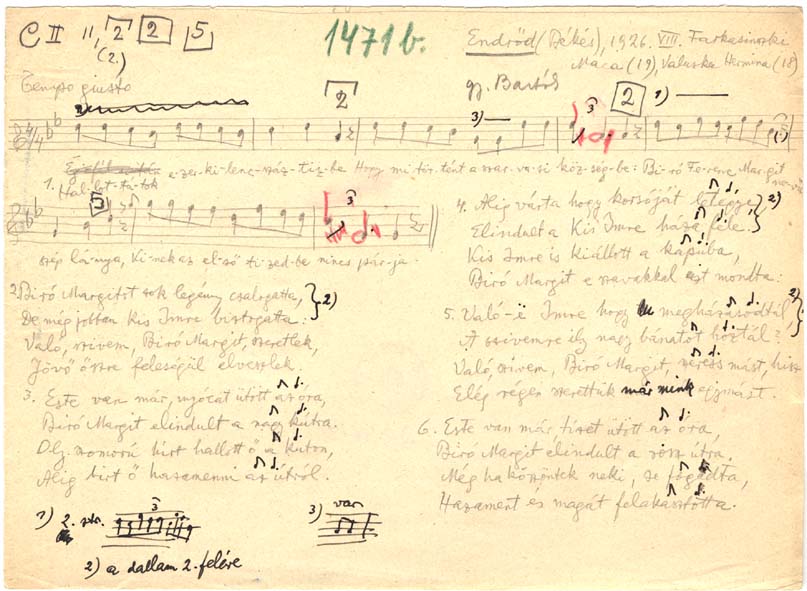 C II 11, 2 2 5
(2.)
1471 b.
Endrőd (Békés), 1926. VIII. Farkasinszki
Maca (19), Valuska Hermina (18)
Tempo giusto
2
gy. Bartók
2
1)
3)
3
1. ezer-ki-lenc-száz-tiz-be Hogy mi tör-tént a szar-va-si köz-ség-be: Bi-ró Fe-renc Margit
szép lá-nya, Ki-nek az el-ső ti-zed-be nincs pár-ja.
2. Biró Margitot sok legény csalogatta, } 2)
De még jobban Kis Imre biztogatta:
Való, szivem, Biró Margit, szeretlek,
Jövő őszre feleségül elveszlek.
3. Este van már, nyócat ütött az óra,
Biró Margit elindult a nagy kútra.
Oly szomorú hirt hallott ő a kúton,
Alig birt ő hazamenni az útról.
4. Alig várta hogy korsóját letegye, } 2)
Elindult a Kis Imre háza féle.
Kis Imre is kiállott a kapuba,
Biró Margit e szavakkal ezt mondta:
5. Való-ë Imre hogy megházasodtál } 2)
A szivemre ily nagy bánatot hoztál?
Való, szivem, Biró Margit, keress mást, hisz
Elég régen szerettük már mink egymást.
6. Este van már tizet ütött az óra,
Biró Margit elindult a rossz útra.
Még ha köszöntek neki, se fogadta,
Hazament és magát felakasztotta.
1) 2. str. 3
3) var
2) a dallam 2. felére